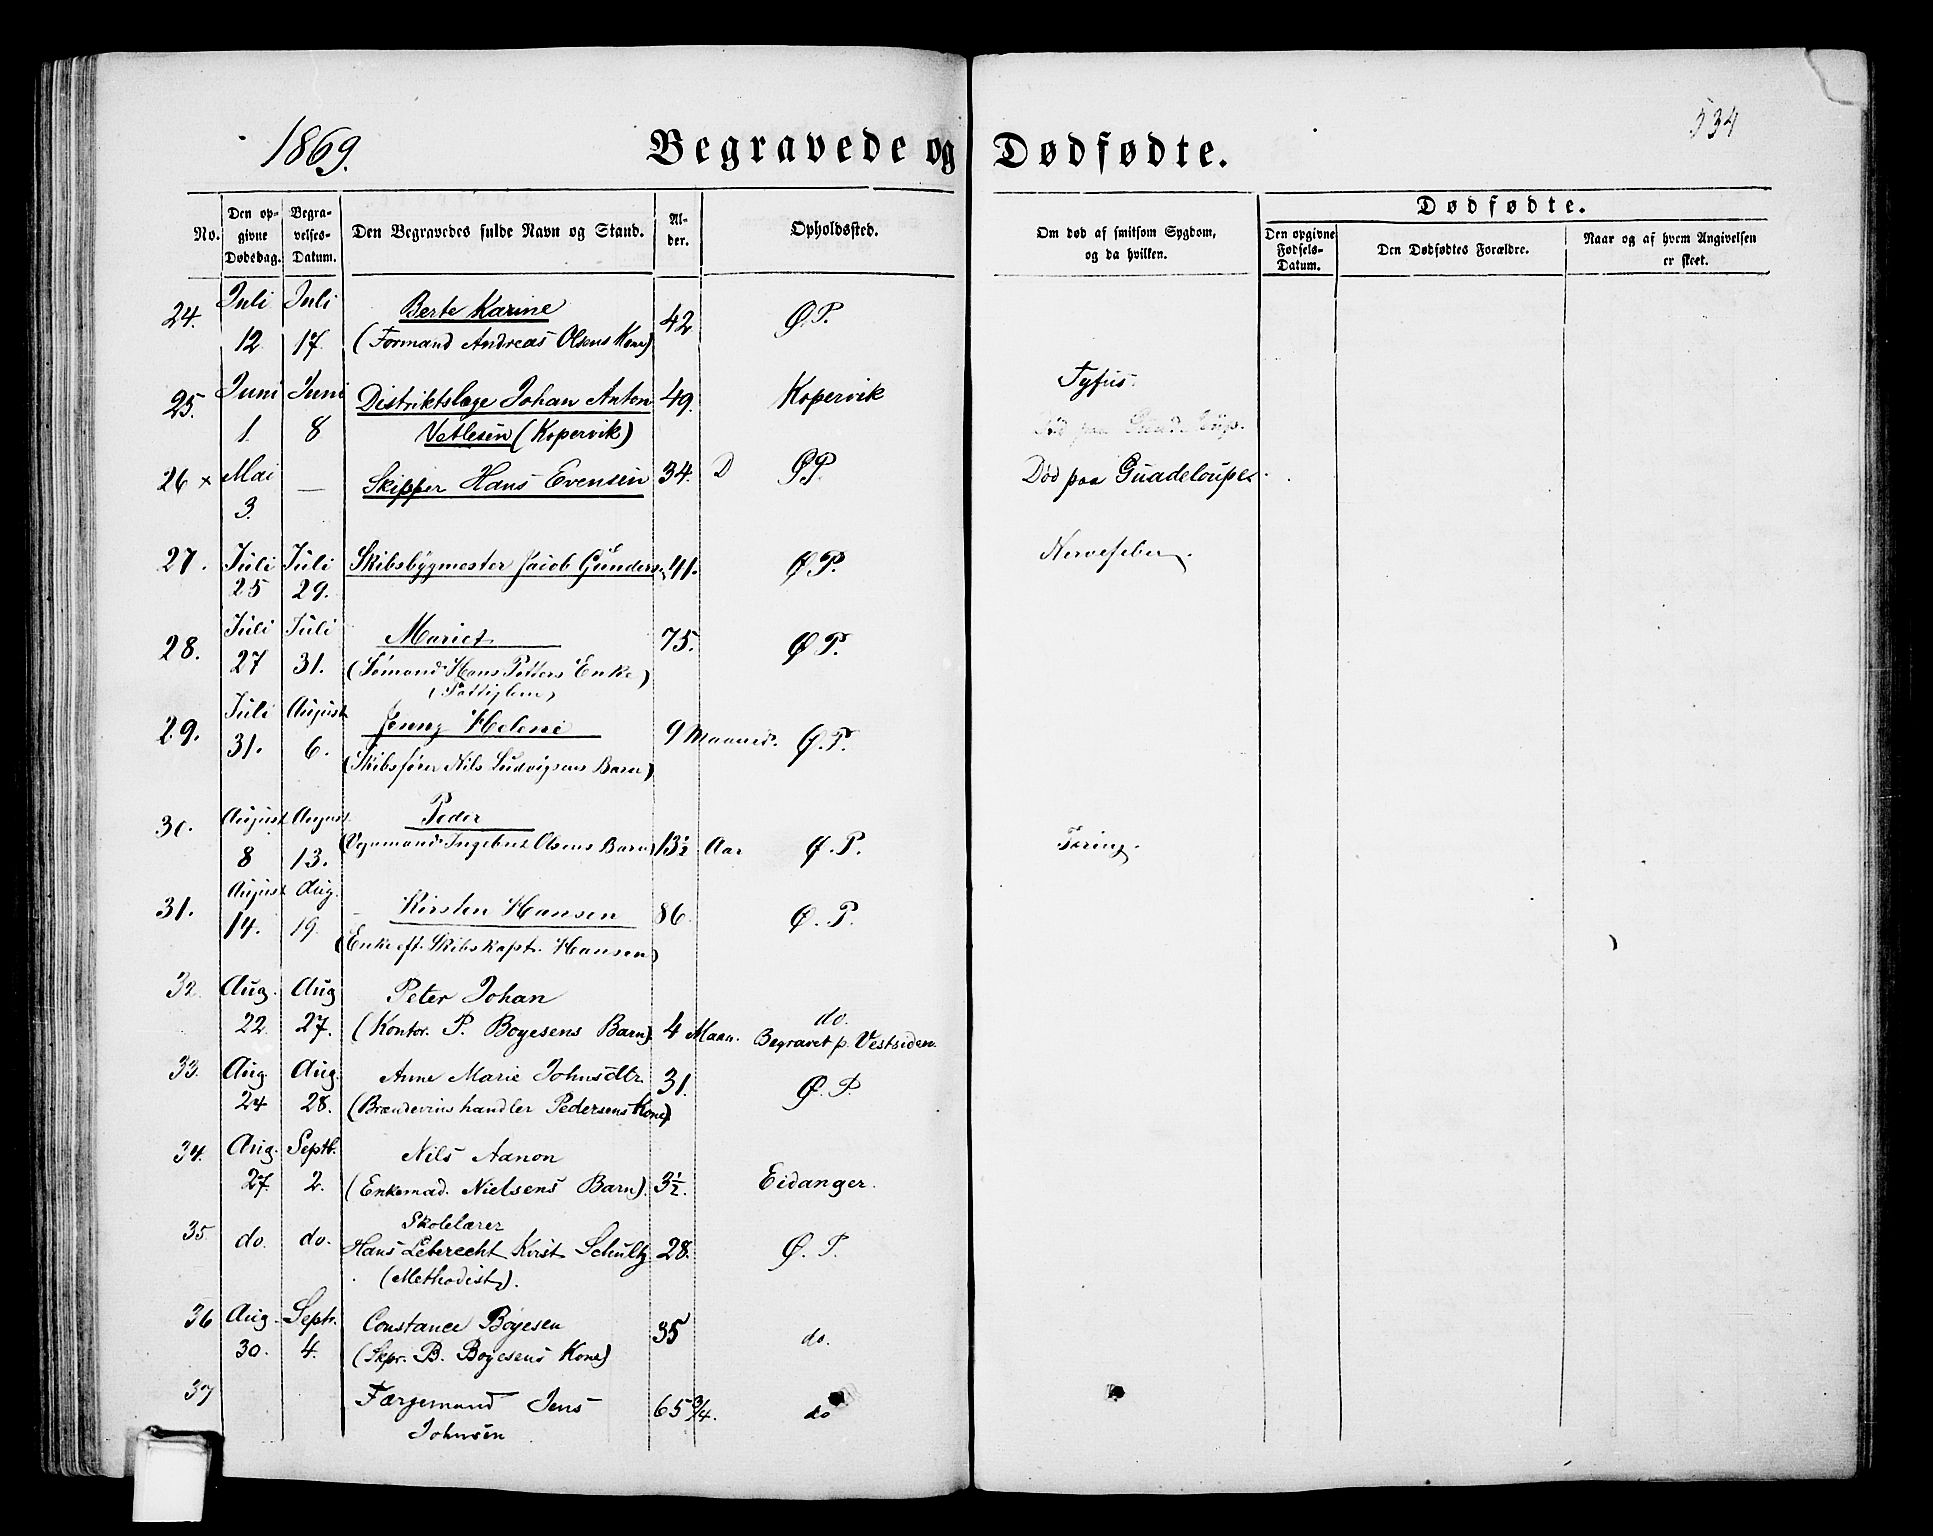 1869. Begravede og Dødfødte. 534
No. Den opgivne Dødsdag. Begravelses-Datum. Den Begravedes fulde Navn og Stand. Alder. Opholdssted. Om død af smitsom Sygdom, og da hvilken. Dødfødte. Den opgivne Fødsels-Datum. Den Dødfødtes Forældre. Naar og af hvem Angivelsen er skeet.
24. Juli 12 Juli 17. Berte Karine 42 Ø.P.
(Formand Andreas Olsens Kone)
25. Juni 1. Juni 8 Distriktslæge Johan Anton 49. Kopervik Tyfus.
Vetlesen (Kopervik)
26 × Mai 3. — Skipper Hans Evensen 34. D ØP. Død paa Guadeloupe.
27. Juli 25 Juli 29. Skibsbygmester Jacob Gundersen 41. Ø P. Nervefeber.
28. Juli 27 Juli 31. Mariet 75. Ø P.
(Sømand Hans Petters Enke)
(Fattiglem)
29. Juli 31. August 6. Jenny Helene 9 Maaned. Ø.P.
(Skibsfører Nils Ludvigsens Barn)
30. August 8 August 13. Peder 13½ Aar Ø.P. Tæring.
(Vognmand Ingebret Olsens Barn)
31. August 14. Aug. 19. Kirsten Hansen 86. Ø.P.
(Enke eft. Skibskapt. Hansen)
32. Aug. 22. Aug 27. Peter Johan
(Kontor. P. Boyesens Barn). 4 Maan. do. Begravet p. Vestsiden.
33. Aug. 24 Aug. 28. Anne Marie Johnsdtr. 31. Ø.P.
(Brændevinshandler Pedersens Kone)
34. Aug. 27. Septb. 2. Nils Aanon
(Enkemad. Nielsens Barn). 3½. Eidanger.
35 do. do. Skolelærer
Hans Leberecht Krist Schultz 28. Ø.P.
(Methodist).
36 Aug. 30. Septr. 4. Constance Boyesen 35 do.
(Skpr. B. Boyesens Kone)
37 Færgemand Jens 65 3/4. do
Johnsen